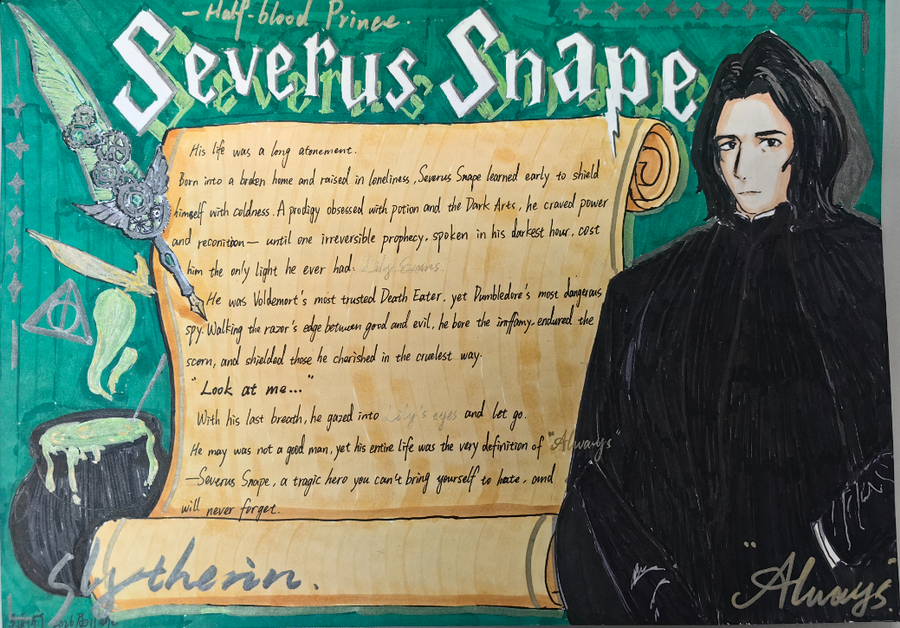 — Half-blood Prince.
Severus Snape
His life was a long atonement.
Born into a broken home and raised in loneliness, Severus Snape learned early to shield
himself with coldness. A prodigy obsessed with potion and the Dark Arts, he craved power
and reconition— until one irreversible prophecy, spoken in his darkest hour, cost
him the only light he ever had: Lily Evans.
He was Voldemort's most trusted Death Eater, yet Dumbledore's most dangerous
spy. Walking the razor's edge between good and evil, he bore the inffamy, endured the
scorn, and shielded those he charished in the cruelest way.
"Look at me..."
With his last breath, he gazed into Lily's eyes and let go.
He may was not a good man, yet his entire life was the very definition of "Always"
—Severus Snape, a tragic hero you can't bring yourself to hate, and
will never forget.
Slytherin.
"Always".